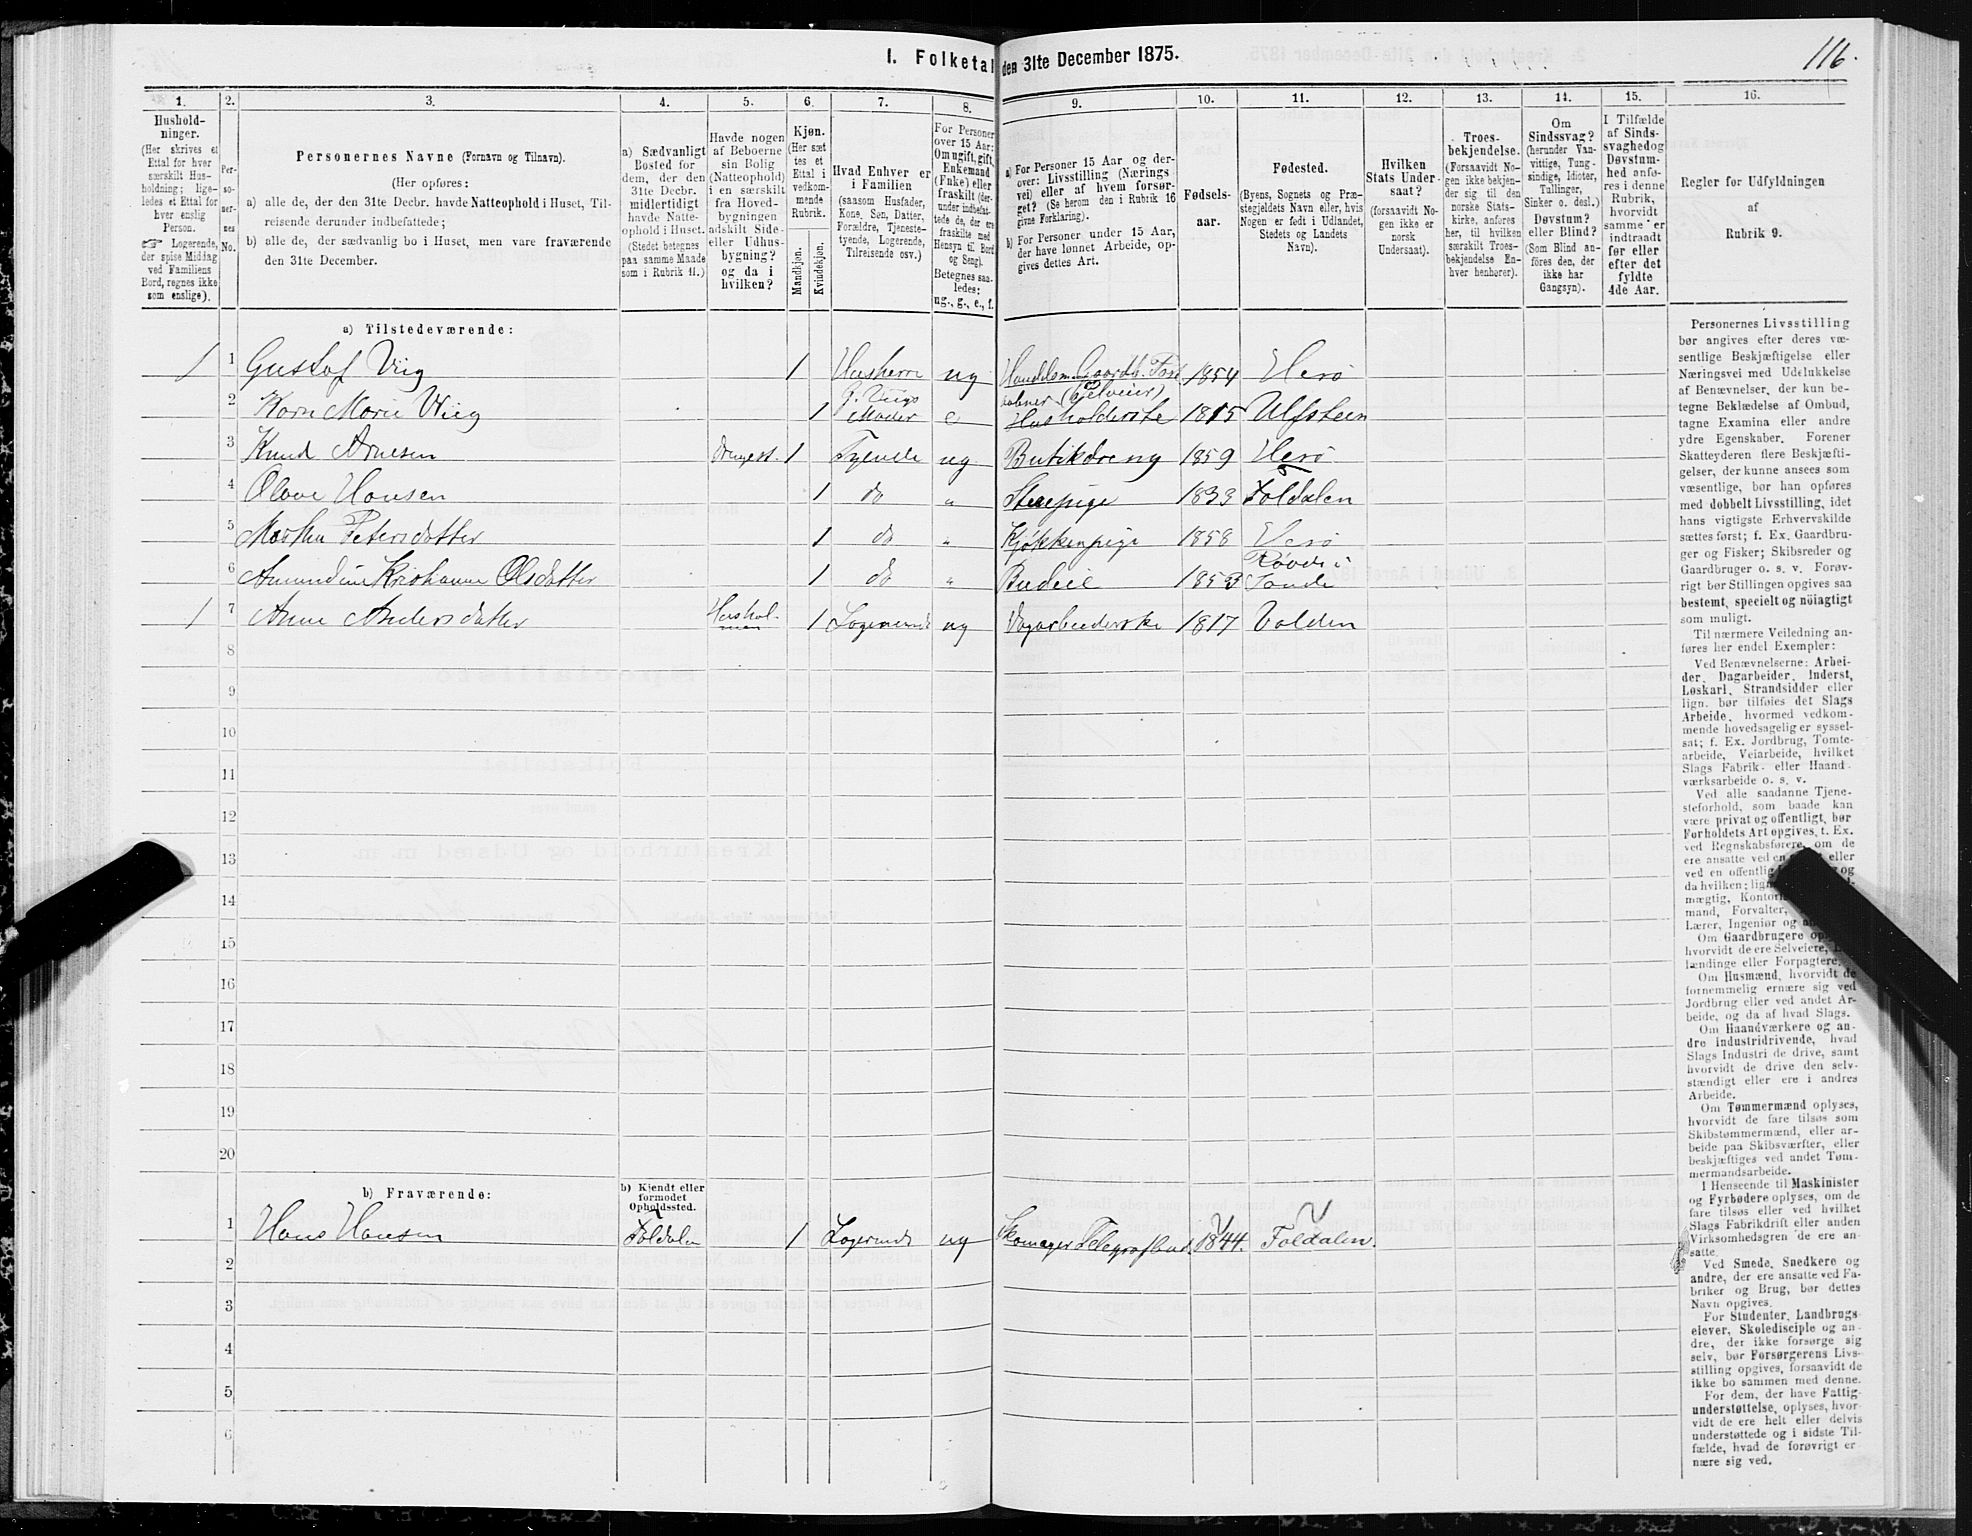 116.
I. Folketal den 31te December 1875.
1. 2. 3. 4. 5. 6. 7. 8. 9. 10. 11. 12. 13. 14. 15. 16.
Hushold-
ninger.
(Her skrives et
Ettal for hver
særskilt Hus-
holdning; lige-
ledes et Ettal for
hver enslig
Person.
☞ Logerende,
der spise Middag
ved Familiens
Bord, regnes ikke
som enslige).
Per-
so-
ner-
nes
No.
Personernes Navne (Fornavn og Tilnavn).
(Her opføres:
a) alle de, der den 31te Decbr. havde Natteophold i Huset, Til-
reisende derunder indbefattede;
b) alle de, der sædvanlig bo i Huset, men vare fraværende
den 31te December.
a) Sædvanligt
Bosted for
dem, der den
31te Decbr.
midlertidigt
havde Natte-
ophold i Huset.
(Stedet betegnes
paa samme Maade
som i Rubrik 11.)
Havde nogen
af Beboerne
sin Bolig
(Natteophold)
i en særskilt
fra Hoved-
bygningen
adskilt Side-
eller Udhus-
bygning?
og da i
hvilken?
Kjøn.
(Her sæt-
tes et
Ettal i
vedkom-
mende
Rubrik.
Mandkjøn.
Kvindekjøn.
Hvad Enhver er
i Familien
(saasom Husfader,
Kone, Søn, Datter,
Forældre, Tjeneste-
tyende, Logerende,
Tilreisende osv.)
For Personer
over 15 Aar:
Om ugift, gift,
Enkemand
(Enke) eller
fraskilt (der-
under indbefat-
tede de, der ere
fraskilte med
Hensyn til Bord
og Seng).
Betegnes saa-
ledes:
ug., g., e., f.
a) For Personer 15 Aar og der-
over: Livsstilling (Nærings
vei) eller af hvem forsør-
get? (Se herom den i Rubrik 16
givne Forklaring).
b) For Personer under 15 Aar,
der have lønnet Arbeide, op-
gives dettes Art.
Fødsels-
aar.
Fødested.
(Byens, Sognets og Præ-
stegjeldets Navn eller, hvis
Nogen er født i Udlandet,
Stedets og Landets
Navn).
Hvilken
Stats Under-
saat?
(forsaavidt No-
gen ikke er
norsk
Undersaat).
Troes-
bekjendelse.
(Forsaavidt No-
gen ikke bekjen-
der sig til den
norske Stats-
kirke, anføres
her, til hvilken
særskilt Troes-
bekjendelse En-
hver henhører).
Om
Sindssvag?
(herunder Van-
vittige, Tung-
sindige, Idioter,
Tullinger,
Sinker o. desl.)
Døvstum?
eller Blind?
(Som Blind an-
føres den, der
ikke har
Gangsyn).
I Tilfælde
af Sinds-
svaghed og
Døvstum-
hed anfø-
res i denne
Rubrik,
hvorvidt
samme er
indtraadt
før eller
efter det
fyldte
4de Aar.
Regler for Udfyldningen
af
Rubrik 9.
a) Tilstedeværende:
1 1 Gustaf Viig 1 Husherre ug Handelsm. Gaardb. Post 1854 Herø
aabner (Selveier)
2 Karn Marie Wiig 1 G. Viigs Moder e Husholderske 1815 Ulfsteen
3 Knud Arnesen Drengest. 1 Tyende ug Butikdreng 1859 Herø
4 Olave Hansen 1 do " Stuepige 1833 Foldalen
5 Martha Petersdatter 1 do " Kjøkkenpige 1858 Herø
6 Amundine Kristianne Olsdatter 1 do " Budeie 1853 Røvde i Sande
1 7 Anne Andersdatter 1 Logerende ug Dagarbeiderske 1817 Volden
8
9
10
11
12
13
14
15
16
17
18
19
20
b) Fraværende:
b) Kjendt eller
formodet
Opholdssted.
1 Hans Hansen Foldalen 1 Logerende ug Skomager Telegrafbud. 1844. Foldalen.
2
3
4
5
6
Personernes Livsstilling
bør angives efter deres væ-
sentlige Beskjæftigelse eller
Næringsvei med Udelukkelse
af Benævnelser, der kun be-
tegne Beklædelse af Ombud,
tagne Examina eller andre
ydre Egenskaber. Forener
Skatteyderen flere Beskjæfti-
gelser, der kunne ansees som
væsentlige, bør han opføres
med dobbelt Livsstilling, idet
hans vigtigste Erhvervskilde
sættes først; f. Ex. Gaardbru-
ger og Fisker; Skibsreder og
Gaardbruger o. s. v. Forøv-
rigt bør Stillingen opgives saa
bestemt, specielt og nøiagtigt
som muligt.
Til nærmere Veiledning an-
føres her endel Exempler:
Ved Benævnelserne: Arbei-
der, Dagarbeider, Inderst,
Løskarl, Strandsidder eller
lign. bør tilføies det Slags
Arbeide, hvormed vedkom-
mende hovedsagelig er syssel-
sat; f. Ex. Jordbrug, Tomte-
arbeide, Veiarbeide, hvilket
Slags Fabrik- eller Haand-
værksarbeide o. s. v.
Ved alle saadanne Tjene-
steforhold, som baade kan
være privat og offentligt, bør
Forholdets Art opgives, t. Ex.
ved Regnskabsførere, om de
ere ansatte ved en eller
ved en offentlig og
da hvilken;
mægtig,
mand, Forvalter,
Lærer, Ingeniør og
Om Gaardbrugere
hvorvidt de ere Selveiere,
lændinge eller Forpagtere.
Om Husmænd, hvorvidt de
fornemmelig ernære sig ved
Jordbrug eller ved andet Ar-
beide, og da af hvad Slags.
Om Haandværkere og an-
dre industridrivende, hvad
Slags Industri de drive, samt
hvorvidt de drive den selv-
stændigt eller ere i andres
Arbeide.
Om Tømmermænd oplyses,
hvorvidt de fare tilsøs som
Skibstømmermænd, eller ar-
beide paa Skibsværfter, eller
beskjæftiges ved andet Tøm-
mermandsarbeide.
I Henseende til Maskinister
og Fyrbødere oplyses, om de
fare tilsøs eller ved hvilket
Slags Fabrikdrift eller anden
Virksomhedsgren de ere an-
satte.
Ved Smede, Snedkere og
andre, der ere ansatte ved Fa-
briker og Brug, bør dettes
Navn opgives.
For Studenter, Landbrugs-
elever, Skoledisciple og an-
dre, der ikke forsørge sig
selv, bør Forsørgerens Livs-
stilling opgives, forsaavidt de
ikke bo sammen med denne.
For dem, der have Fattig-
understøttelse, oplyses, hvor-
vidt de ere helt eller delvis
understøttede og i sidste Til-
fælde, hvad de forøvrigt er-
nære sig ved.